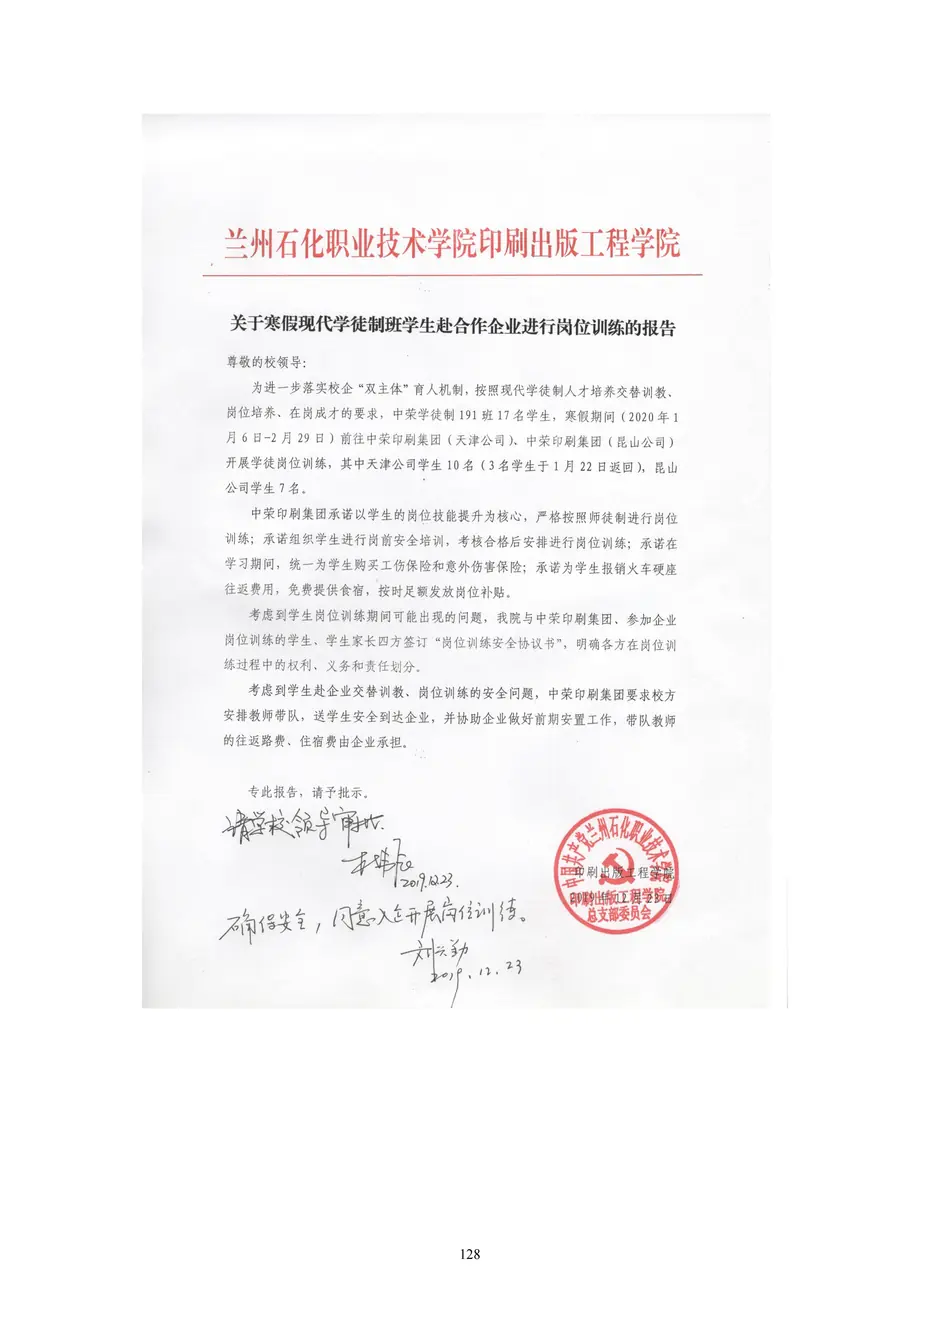 兰州石化职业技术学院印刷出版工程学院
关于寒假现代学徒制班学生赴合作企业进行岗位训练的报告
尊敬的校领导：
为进一步落实校企“双主体”育人机制，按照现代学徒制人才培养交替训教、
岗位培养、在岗成才的要求，中荣学徒制191班17名学生，寒假期间（2020年1
月6日-2月29日）前往中荣印刷集团（天津公司）、中荣印刷集团（昆山公司）
开展学徒岗位训练，其中天津公司学生10名（3名学生于1月22日返回），昆山
公司学生7名。
中荣印刷集团承诺以学生的岗位技能提升为核心，严格按照师徒制进行岗位
训练；承诺组织学生进行岗前安全培训，考核合格后安排进行岗位训练；承诺在
学习期间，统一为学生购买工伤保险和意外伤害保险；承诺为学生报销火车硬座
往返费用，免费提供食宿，按时足额发放岗位补贴。
考虑到学生岗位训练期间可能出现的问题，我院与中荣印刷集团、参加企业
岗位训练的学生、学生家长四方签订“岗位训练安全协议书”，明确各方在岗位训
练过程中的权利、义务和责任划分。
考虑到学生赴企业交替训教、岗位训练的安全问题，中荣印刷集团要求校方
安排教师带队，送学生安全到达企业，并协助企业做好前期安置工作，带队教师
的往返路费、住宿费由企业承担。
专此报告，请予批示。
请学校领导审批.
2019.12.23.
中国共产党兰州石化职业技术学院
印刷出版工程学院
2019年12月23日
印刷出版工程学院
总支部委员会
确保安全，同意入企开展岗位训练。
刘兴勤
2019.12.23
128